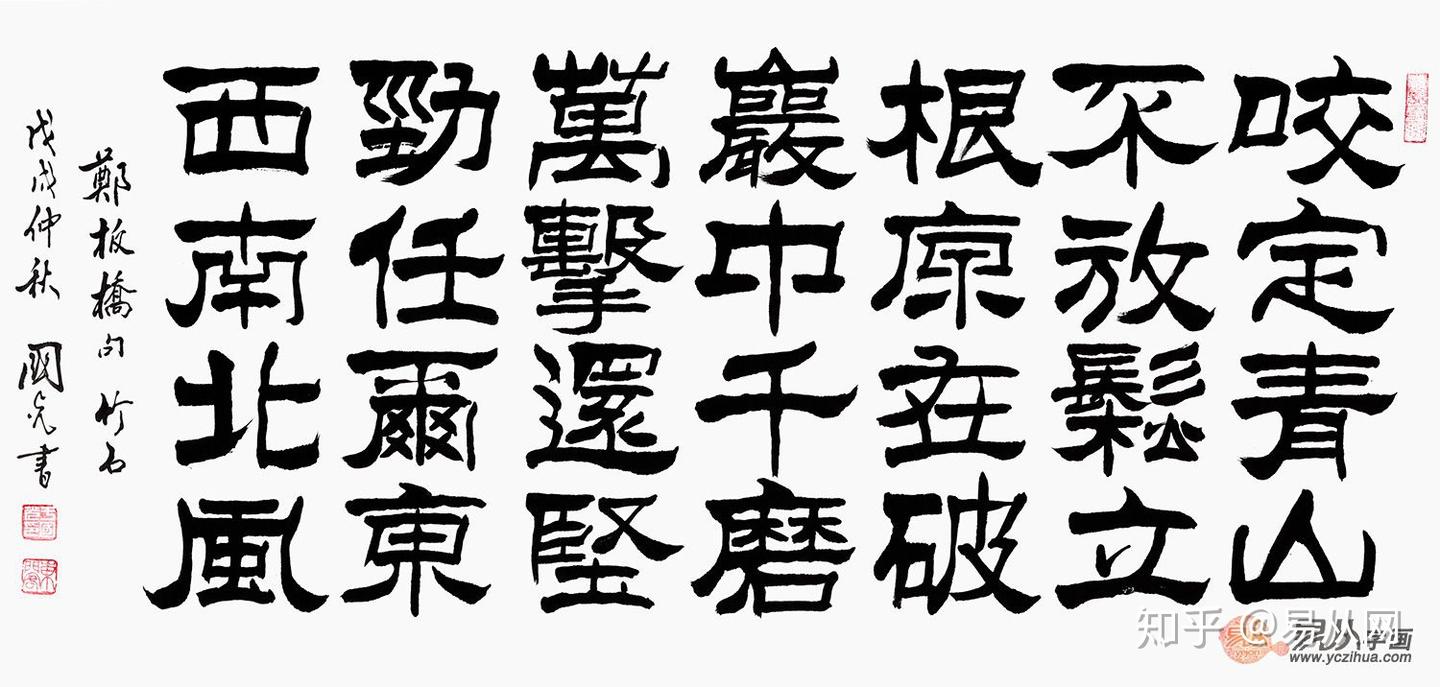 咬定青山
不放鬆立
根原在破
巖中千磨
萬擊還堅
勁任爾東
西南北風
鄭板橋句竹石
戊戌仲秋 國光書
知乎 @易从网
易从字画
www.yczihua.com